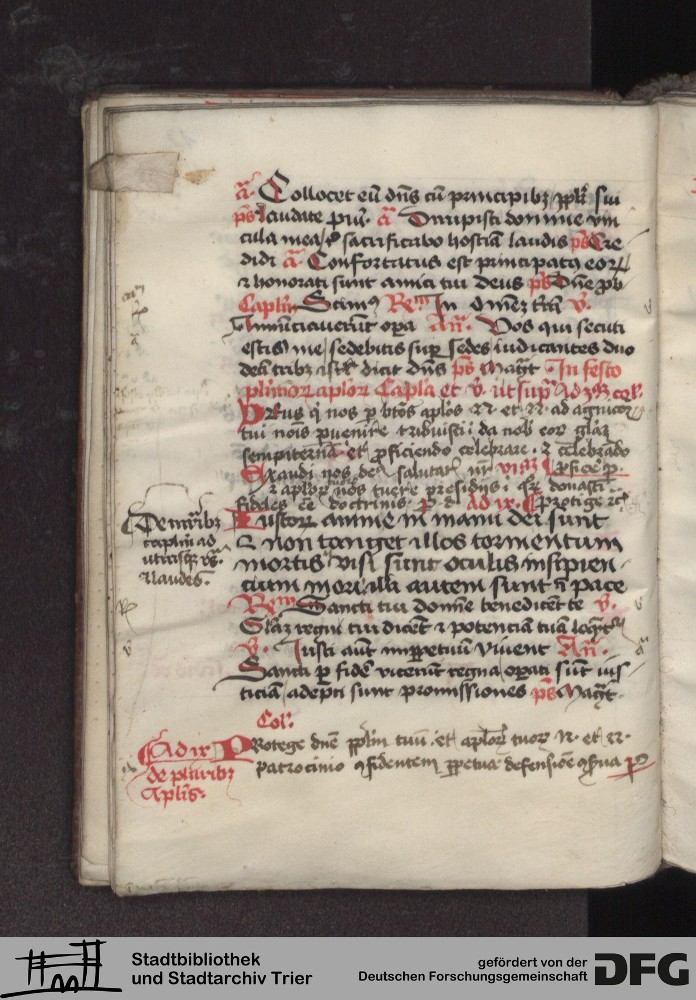 a. Collocet eu dns cu principibz ppli sui
ps Laudate pueri. a Dirupisti domine vin
cula mea, sacrificabo hostia laudis ps Cre
didi a Confortatus est principatus eor
et honorati sunt amici tui deus ps Dne pb
Caplm Scimus Rm In omez tra v.
Annunciaverut opa An. Vos qui secuti
estis me, sedebitis sup sedes iudicantes duo
deci tribz isrl dicit dns ps Magt In festo
plurior aplor Capla et v. ut supa Ad
Deus qi nos p btos aplos N et N ad agnicoem
tui nois pvenire tribuisti, da nob eor glaz
sempiterna et pficiendo celebrare. et celebrado
Exaudi nos de salutar nr
et aplor tuere presidiis, donasti
fideles ee doctrinis p d Ad ix. Protige
Iustor anime in manu dei sunt
et non tanget illos tormentum
mortis visi sunt oculis insipien
tium mori illi autem sunt i pace
Rm Sancti tui domne benedicet te v.
Glaz regni tui dicet et potencia tua
v. Iusti aut imppetuu vivent An.
Sancti p fide vicerut regna, opati sut ius
ticia, adepti sunt promissiones ps Magt
Col.
Protege dne pplm tuu. et aplor tuor N. et N.
patrocinio confidentem ppetua defensioe conserva p
caplm ad
utrasque vs.
et laudes.
Ad ix
de pluribz
aplis.
Stadtbibliothek
und Stadtarchiv Trier
gefördert von der
Deutschen Forschungsgemeinschaft
DFG